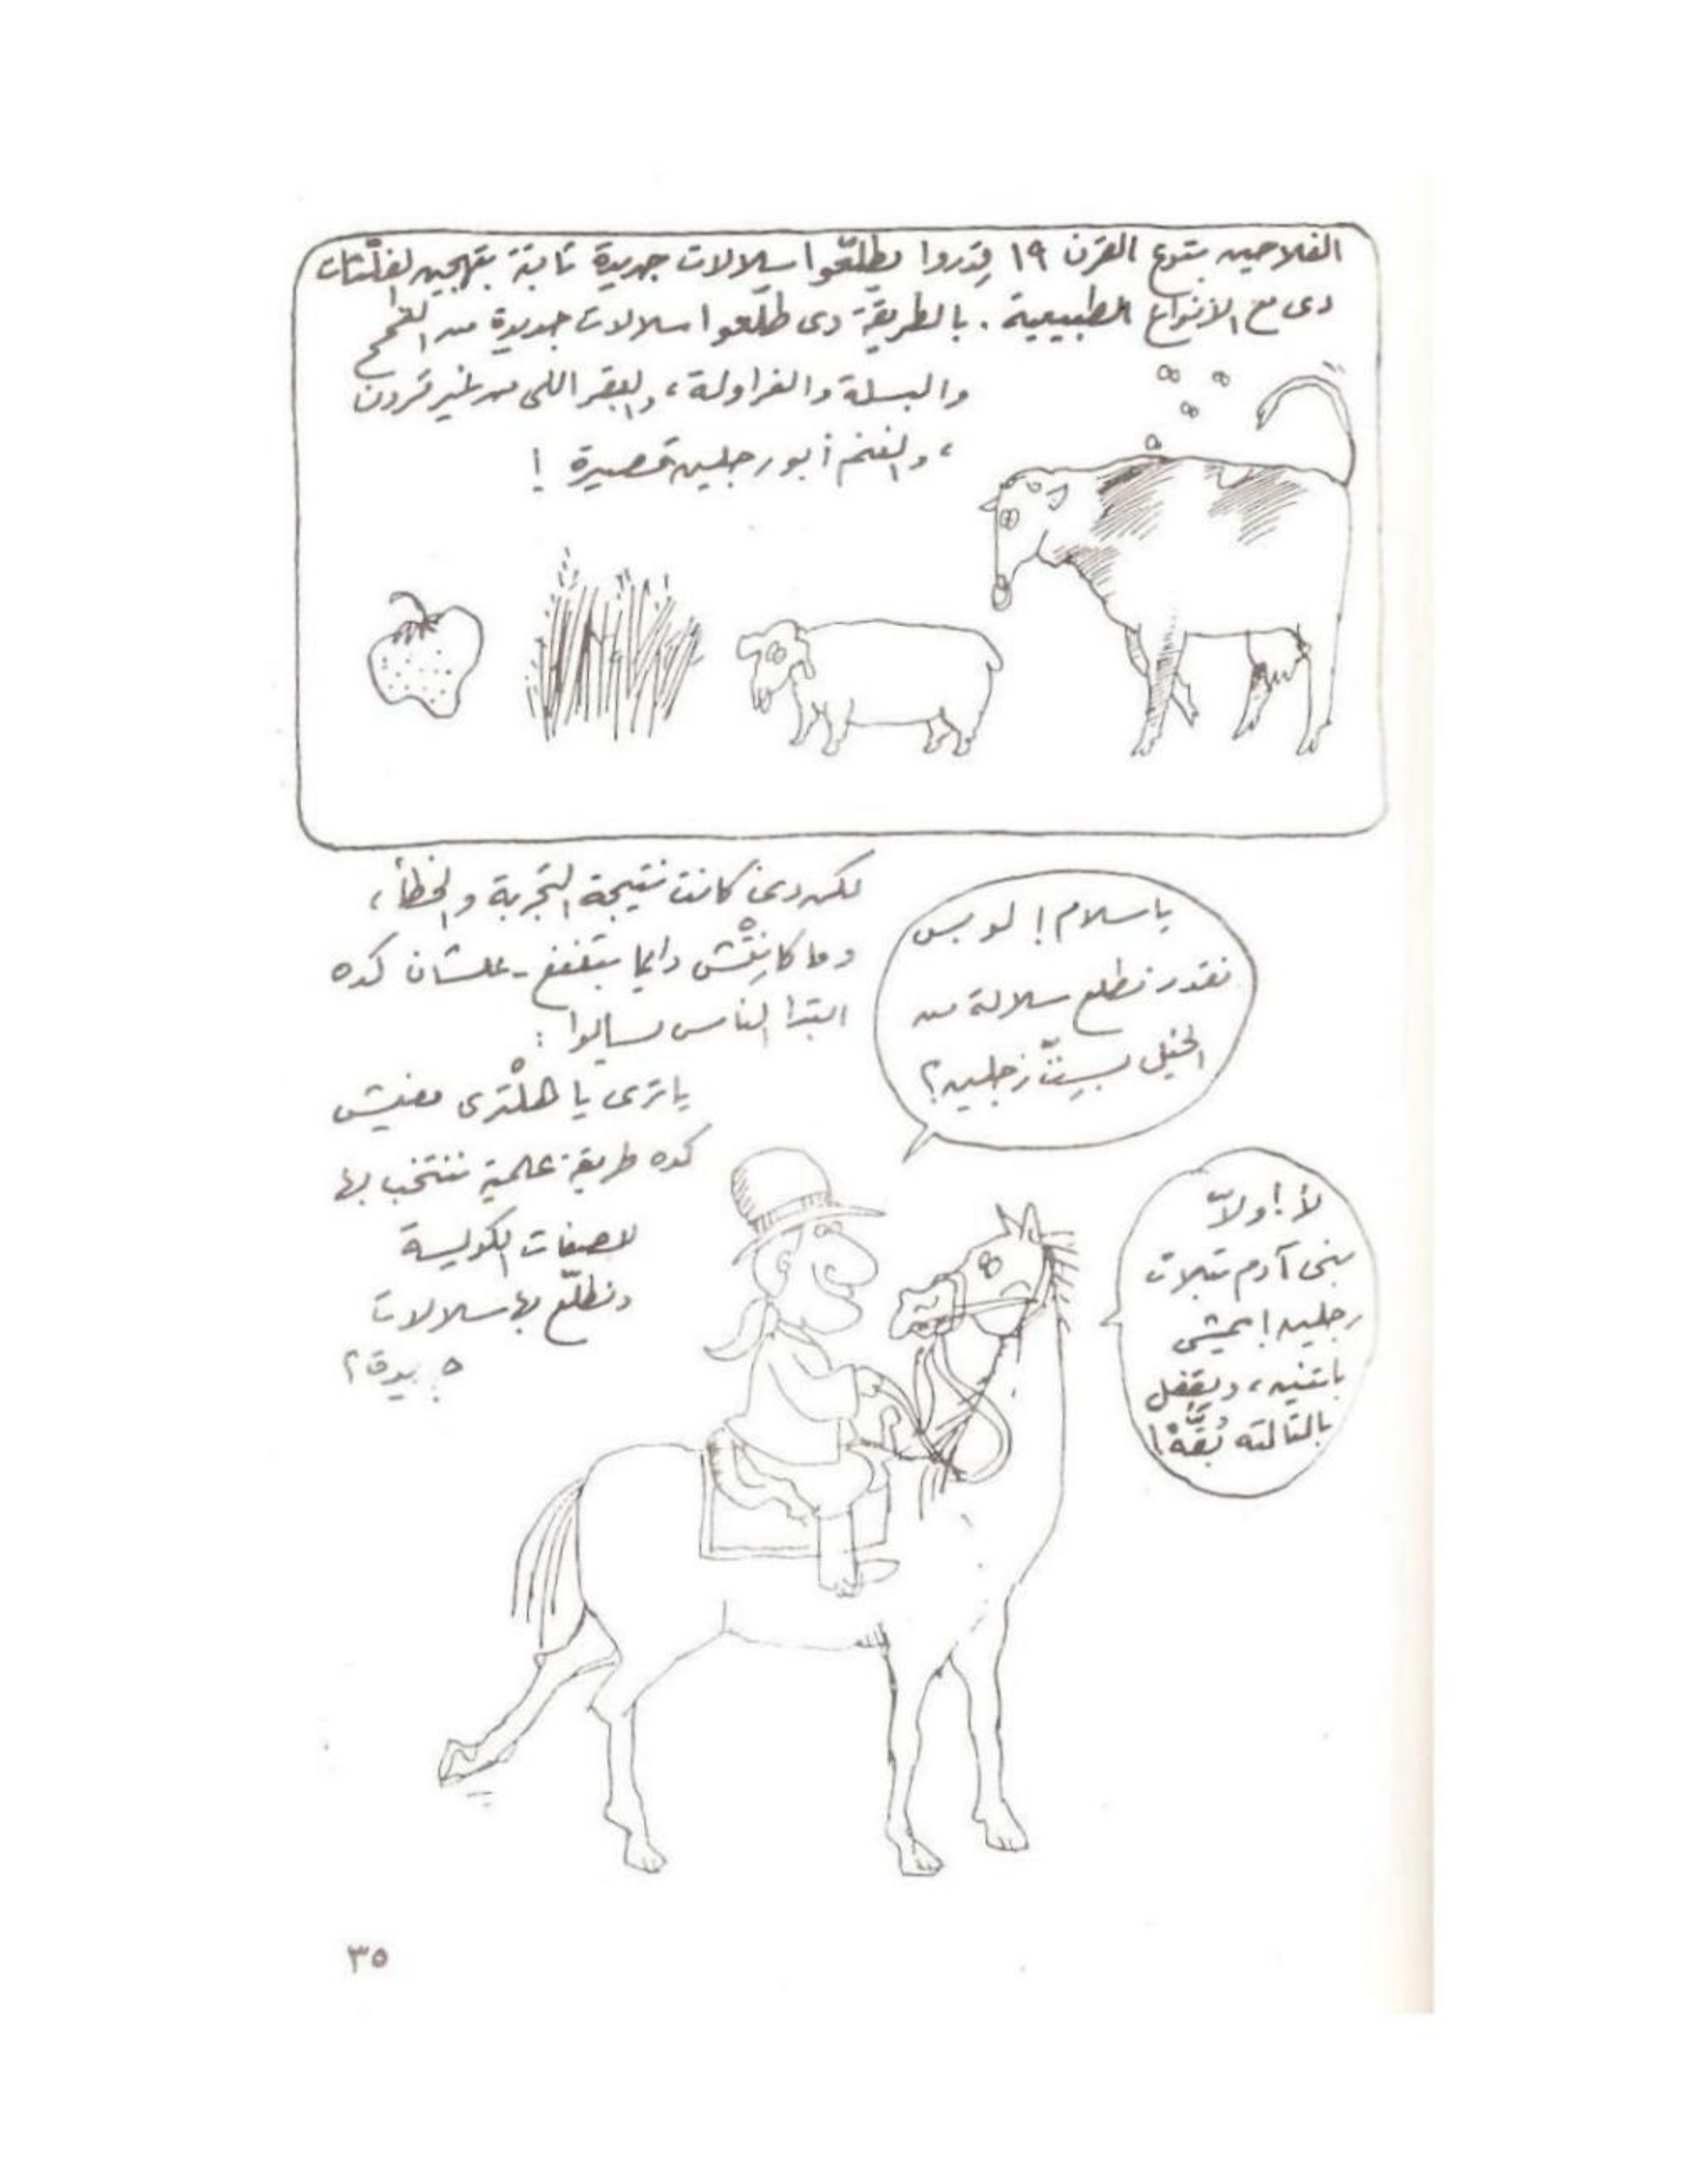 الفلاحين بتوع القرن ١٩ قِدروا يطلّعوا سلالات جديدة ثابتة بتهجين الفلْتات
دى مع الأنواع الطبيعية . بالطريقة دى طلّعوا سلالات جديدة من القمح
والبسلة والفراولة ، والبقر اللى من غير قرون
، والغنم أبو رجلين قصيرة !
لكن دى كانت نتيجة التجربة والخطأ ،
وما كانِتْش دايما بتنفع - علشان كده
ابتدا الناس يسألوا :
ياترى يا هلْترى مفيش
كده طريقة علمية ننتخب بها
الصفات الكويسة
ونطلّع بها سلالات
يا سلام ! لو بس
نقدر نطلع سلالة من
الخيل بسِتّ رجلين ؟
لأ ! أولاً
بنى آدم بتلات
رجلين ! يمشى
باتنين ، ويقفل
بالتالته بُقَّهْ !
٣٥